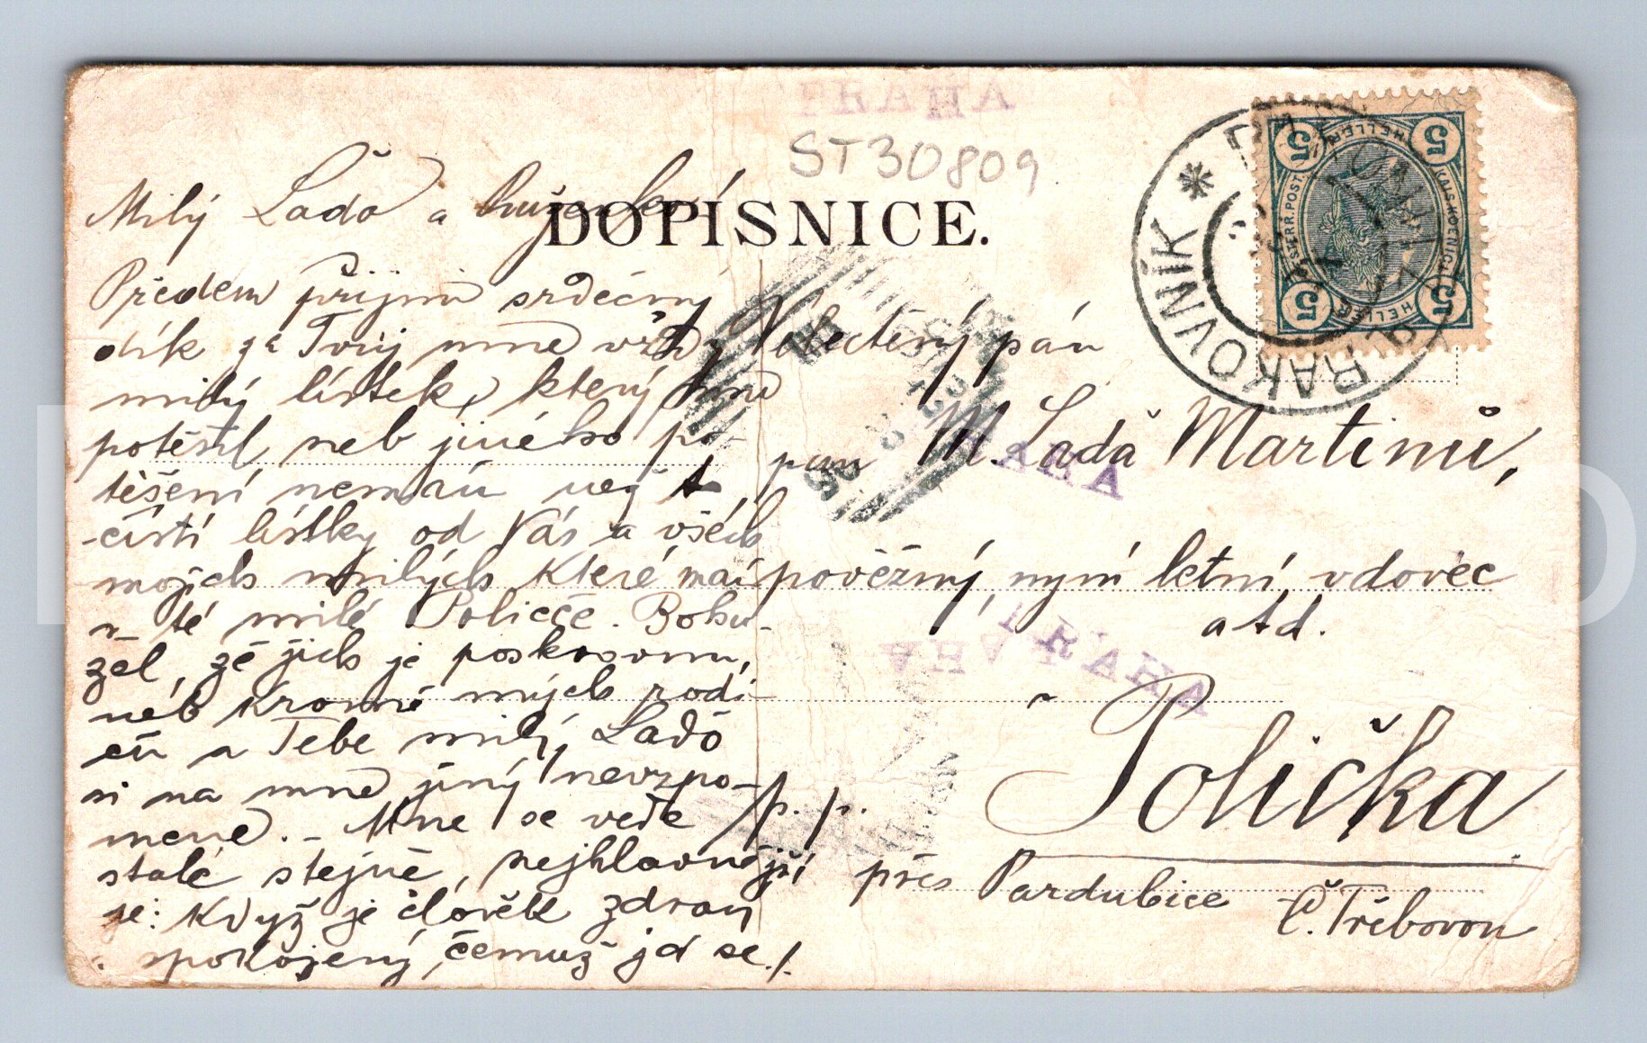 ST30809
DOPISNICE.
RAKOVNÍK
5 HELLER 5
5 HELLER 5
PRAHA
PRAHA
Milý Laďo a
Předem přijmi srdečný
dík za Tvůj mně vždy
milý lístek, který mně
potěšil, neb jiného po-
těšení nemám než
čísti lístky od Vás a všech
mojich milých které mají
v té milé Poličce. Bohu-
žel, že jich je poskrovnu,
neb kromě mých rodi-
čů a Tebe milý Laďo
si na mne jiný nevzpo-
mene. – Mne se vede
stále stejně, nejhlavnější
je: když je člověk zdráv
a spokojený, čemuž jd se./.
Velectěný pán
pan M. Laďa Martinů,
pověžný, nyní letní vdovec
atd.
p. p. Polička
přes Pardubice Č. Třebovou